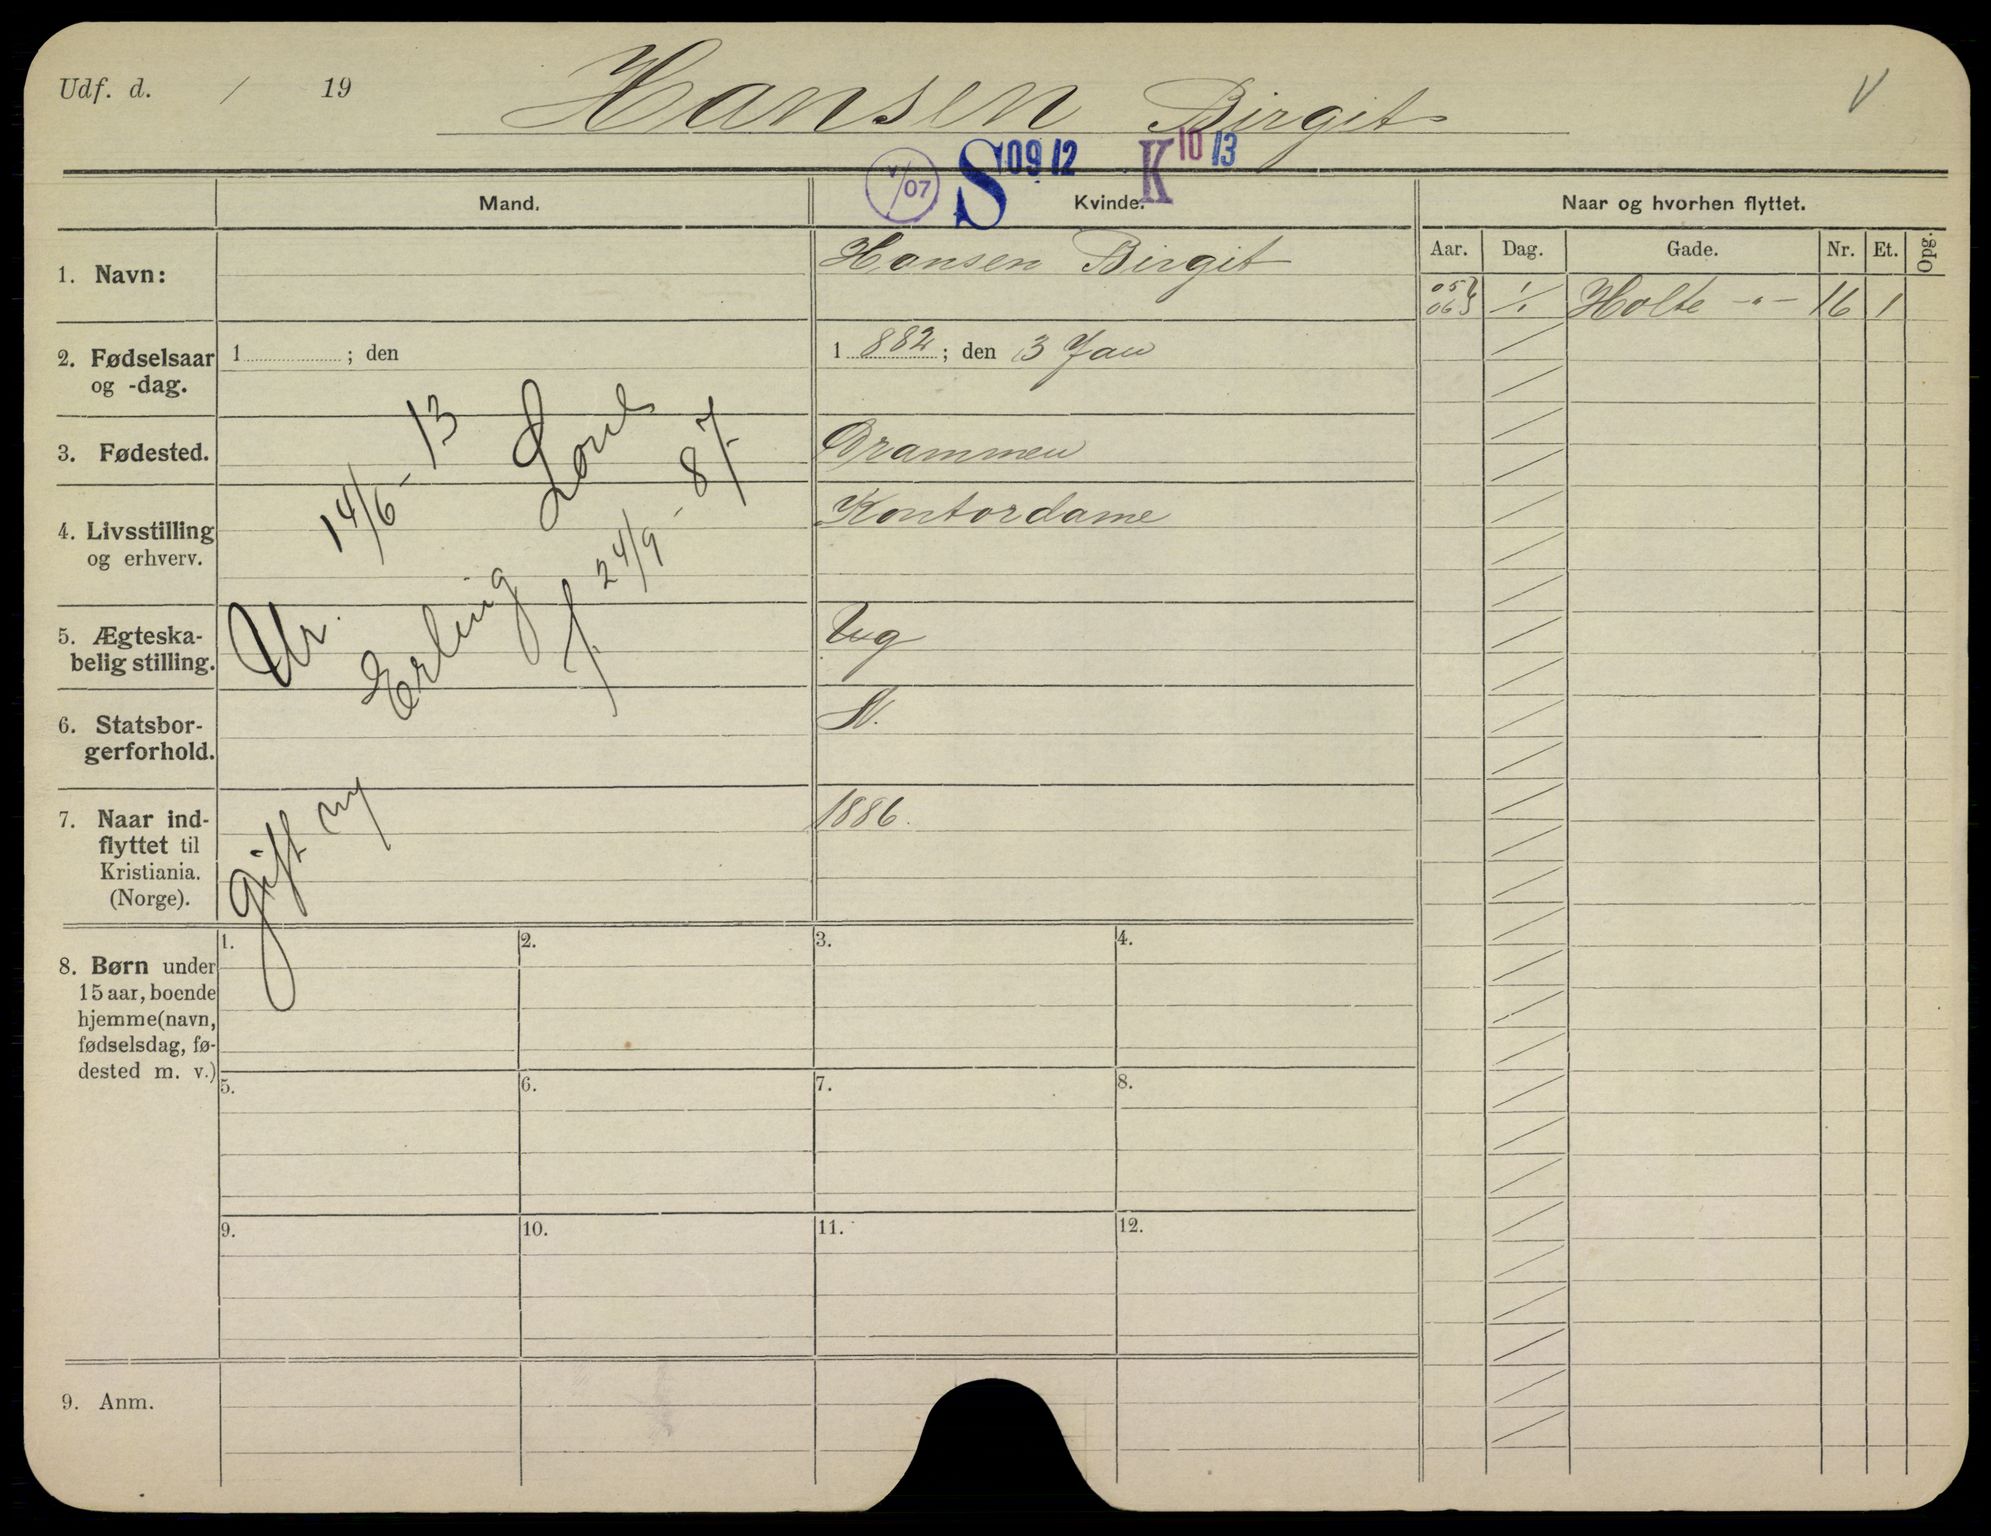 Udf. d. / 19
Hansen Birgit
V
V/07 S 09 12 K 10 13
Mand. Kvinde. Naar og hvorhen flyttet.
Aar. Dag. Gade. Nr. Et. Opg.
1. Navn: Hansen Birgit
1/1 Holte -"- 16 1
2. Fødselsaar
og -dag.
1 ; den
1 882 ; den 3 Jan
3. Fødested. Drammen
4. Livsstilling
og erhverv.
Kontordame
5. Ægteska-
belig stilling.
Ug
6. Statsbor-
gerforhold.
N.
7. Naar ind-
flyttet til
Kristiania.
(Norge).
1886.
gift
14/6-13
Erling
f. 24/9-87
8. Børn under
15 aar, boende
hjemme (navn,
fødselsdag, fø-
dested m. v.)
1. 2. 3. 4.
5. 6. 7. 8.
9. 10. 11. 12.
9. Anm.